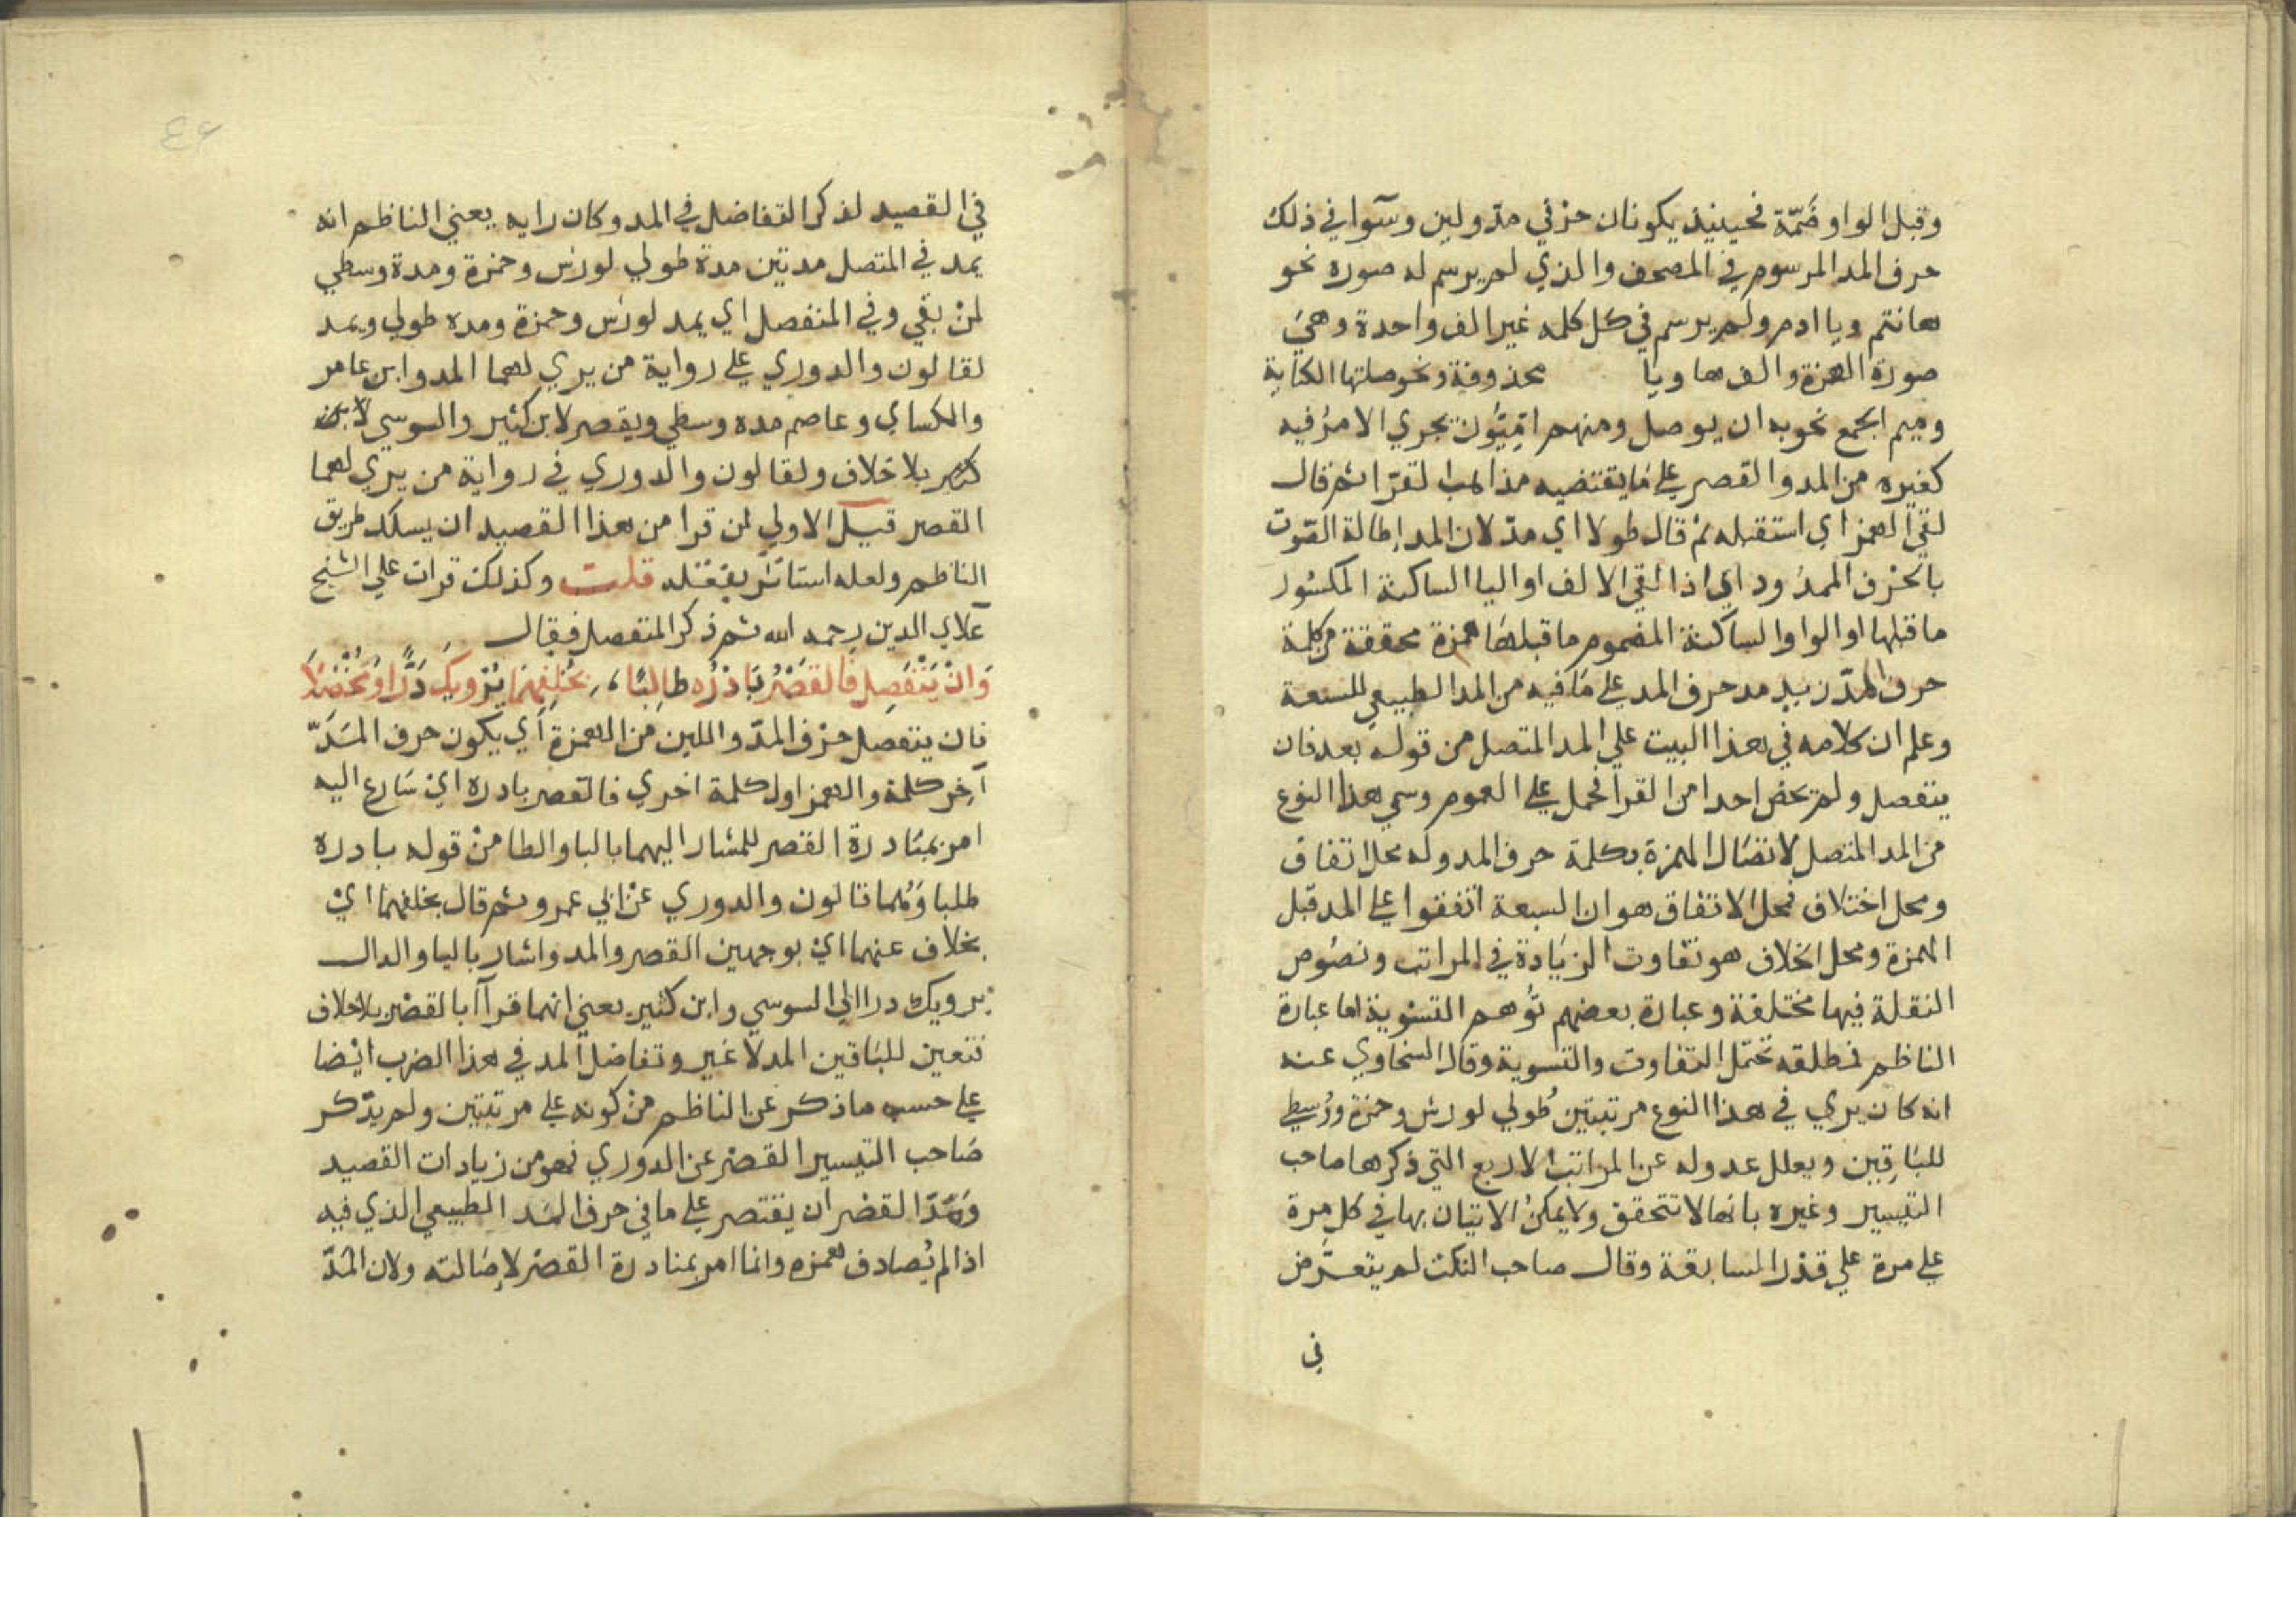 وقبل الواو ضَمّة فحينيذ يكونان حرْفي مدّ ولين وسَوا في ذلك
حرف المد المرسوم في المصحف والذي لم يرسم له صوره نحو
هانتم ويا ادم ولم يرسم في كل كلمه غير الف واحدة وهيَ
صورة الهمزة والف ها ويا محذوفة ونحو صلتها الكناية
وميم الجمع نحو به ان يوصل ومنهم امّيّون يجري الامرُ فيه
كغيره من المد والقصر على مَا يقتضيه مذاهب القرّا ثم قال
لقي الهمز اي استقبله ثم قال طولا اي مدّ لان المد إطالة الصّوت
بالحرْف الممدُود اي اذا القي الالف او اليا الساكنة المكسُور
ما قبلها او الواو الساكنة المضموم ما قبلهَا همزة محققة من كلمة
حرف المدّ زيد مد حرف المد على مَا فيه من المد الطبيعي للسبعة
وعلم ان كلامه في هذا البيت علي المد المتصل من قوله بعد فان
ينفصل ولم يخص احدا من القرا فحمل على العموم وسمي هذا النوع
من المد المتصل لاتصَال الهمزة بكلمة حرف المد وله محل اتفاق
ومحل اختلاف فمحل الاتفاق هو ان السبعة اتفقوا على المد قبل
الهمزة ومحل الخلاف هو تفاوت الزيَادة في المراتب ونصُوص
النقلة فيها مختلفة وعبارة بعضهم تُوهم التسْوية اما عبارة
الناظم فمطلقه تحتمل التفاوت والتسوية وقال السخاوي عنه
انه كان يري في هذا النوع مرتبتين طُولي لورش وحمزة ووُسطي
للبَاقِين ويعلل عدوله عن المراتب الاربع التي ذكرها صاحب
التيسير وغيره بانها لا تتحقق ولا يمكنُ الاتيان بها في كل مرة
على مرة علي قدْر السابقة وقال صاحب النكت لم يتعرَّض
في
في القصيد لذكر التفاضل في المد وكان رايه يعني الناظم انه
يمد في المتصل مدتين مدة طولي لورش وحمزة ومدة وسطي
لمنْ بقي وفي المنفصل اي يمد لورش وحمزة ومده طولي ويمد
لقالون والدوري على رواية من يري لهما المد وابن عامر
والكساي وعاصم مده وسطي ويقصر لابن كثير والسوسي لابن
كثير بلا خلاف ولقالون والدوري في رواية من يري لهما
القصر قيل الاولي لمن قرا من هذا القصيد ان يسلك طريق
الناظم ولعله استاثر بنقله قلت وكذلك قرات علي الشيخ
علاي الدين رحمه الله ثم ذكر المنفصل فقال
وَانْ يَنْفَصِل فالقَصْرُ بَادرْه طالبًا بخُلفِهمَا يُرْويكَ دَرًّا ومُخْضَلاَ
فان ينفصل حرْف المدّ واللين من الهمزة أي يكون حرف المَدّ
آخِر كلمة والهمز اول كلمة اخري فالقصر بادره ايْ سَارع اليه
امر بمبَادرة القصر للمشار اليهما بالبا والطا منْ قوله بادره
طلبا وَهُما قالون والدوري عنْ ابي عمرو ثم قال بخلفهما ايْ
بخلاف عنهما ايْ بوجهين القصر والمد واشار باليا والدال
يرويك درا الي السوسي وابن كثير يعني انهما قرآ بالقصْر بلا خلاف
فتعين للبَاقين المد لا غير وتفاضل المد في هذا الضرب ايْضا
على حسب ما ذكر عن الناظم منْ كونه على مرتبتين ولم يذكر
صَاحب التيسير القصْر عن الدوري فهو من زيادات القصيد
وَحَدّ القصْر ان يقتصر على ما في حرف المَد الطبيعي الذي فيه
اذا لم يُصادف همزه وانما امر بمبادرة القصْر لإصَالته ولان المَدّ